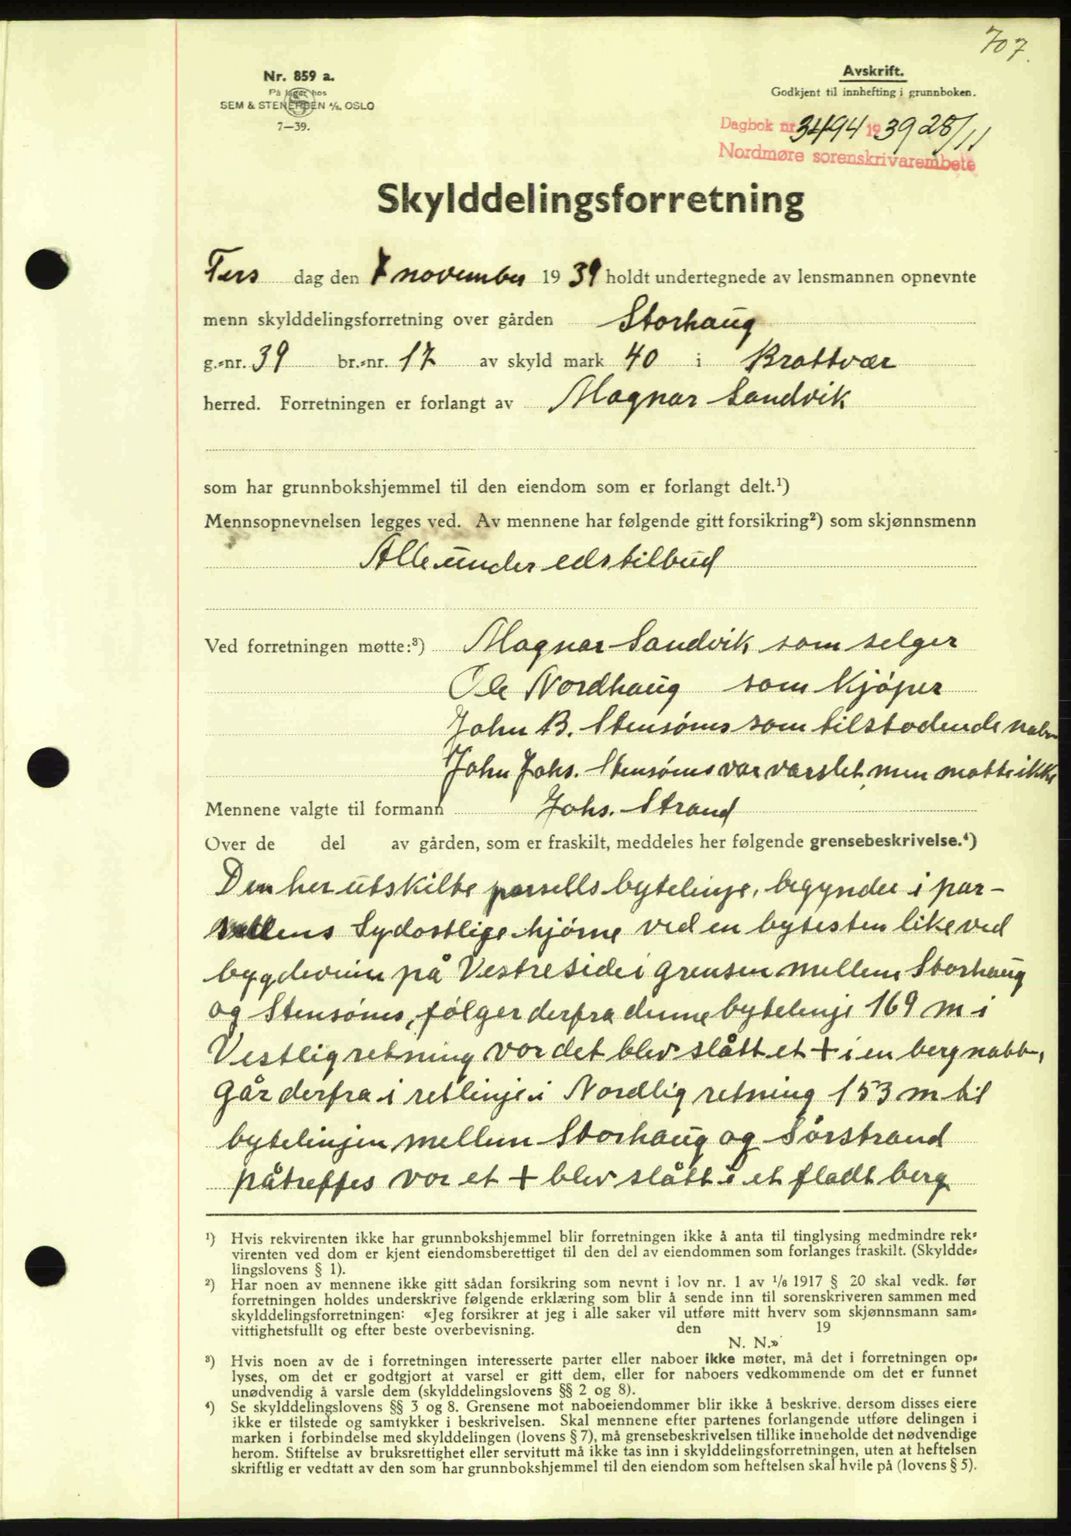 707.
Nr. 859 a.
På lager hos
SEM & STENERSEN A/S. OSLO
7—39.
Avskrift.
Godkjent til innhefting i grunnboken.
Dagbok nr. 3494 1939 28/11
Nordmøre sorenskrivarembete
Skylddelingsforretning
Tirs dag den 7 november 1939 holdt undertegnede av lensmannen opnevnte
menn skylddelingsforretning over gården Storhaug
g.-nr. 39 br.-nr. 17 av skyld mark 40 i Brattvær
herred. Forretningen er forlangt av Magnar Sandvik
som har grunnbokshjemmel til den eiendom som er forlangt delt.¹)
Mennsopnevnelsen legges ved. Av mennene har følgende gitt forsikring²) som skjønnsmenn
Alle under edstilbud
Ved forretningen møtte:³) Magnar Sandvik som selger
Ole Nordhaug som kjøper
John B. Stensønes som tilstødende nabo
John Johs. Stensønes var varslet, men møtte ikke
Mennene valgte til formann Johs. Strand
Over de del av gården, som er fraskilt, meddeles her følgende grensebeskrivelse.⁴)
Den her utskilte parsells bytelinje, begynder i par-
sellens Sydøstlige hjørne ved en bytesten like ved
bygdeveien på Vestre side i grensen mellem Storhaug
og Stensønes, følger derfra denne bytelinje 169 m i
Vestlig retning vor det blev slått et + i en bergnabb,
går derfra i ret linje i Nordlig retning 153 m til
bytelinjen mellem Storhaug og Sørstrand
påtreffes vor et + blev slått i et fladt berg
¹) Hvis rekvirenten ikke har grunnbokshjemmel blir forretningen ikke å anta til tinglysing medmindre rek-
virenten ved dom er kjent eiendomsberettiget til den del av eiendommen som forlanges fraskilt. (Skyldde-
lingslovens § 1).
²) Har noen av mennene ikke gitt sådan forsikring som nevnt i lov nr. 1 av 1/6 1917 § 20 skal vedk. før
forretningen holdes underskrive følgende erklæring som blir å sende inn til sorenskriveren sammen med
skylddelingsforretningen: «Jeg forsikrer at jeg i alle saker vil utføre mitt hverv som skjønnsmann sam-
vittighetsfullt og efter beste overbevisning. den 19
N. N.»
³) Hvis noen av de i forretningen interesserte parter eller naboer ikke møter, må det i forretningen op-
lyses, om det er godtgjort at varsel er gitt dem, eller for naboers vedkommende om det er funnet
unødvendig å varsle dem (skylddelingslovens §§ 2 og 8).
⁴) Se skylddelingslovens §§ 3 og 8. Grensene mot naboeiendommer blir ikke å beskrive, dersom disses eiere
ikke er tilstede og samtykker i beskrivelsen. Skal mennene efter partenes forlangende utføre delingen i
marken i forbindelse med skylddelingen (lovens § 7), må grensebeskrivelsen tillike inneholde det nødvendige
herom. Stiftelse av bruksrettighet eller servitutt må ikke tas inn i skylddelingsforretningen, uten at heftelsen
skriftlig er vedtatt av den som har grunnbokshjemmel til den eiendom som heftelsen skal hvile på (lovens § 5).